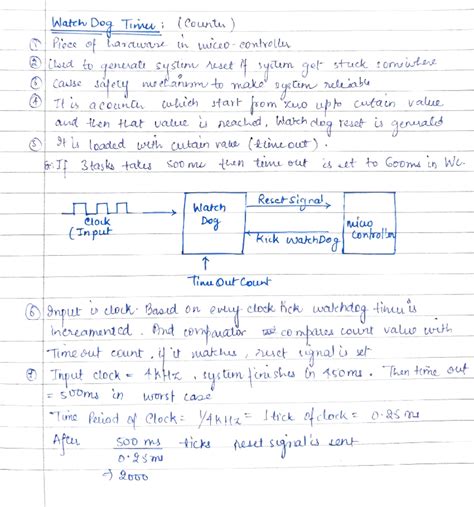 Watch Dog Timer : (Counter)
① Piece of hardware in micro-controller
② Used to generate system reset if system get stuck somewhere
③ Cause safety mechanism to make system reliable
④ It is a counter which start from zero upto certain value
and then that value is reached, Watch dog reset is generated
⑤ It is loaded with certain value (time out).
If 3 tasks takes 500 ms then time out is set to 600ms in WC.
Clock
(Input
Watch
Dog
Reset Signal
Kick WatchDog
micro
Controller
Time Out Count
⑥ Input is clock. Based on every clock tick watchdog timer is
increamented. And comparator compares count value with
Time out count, if it matches, reset signal is set
⑦ Input clock = 4kHz, system finishes in 450ms. Then time out
= 500ms in worst case
Time Period of Clock = 1/4kHz = 1 tick of clock = 0.25 ms
After 500 ms / 0.25 ms ticks reset signal is sent
→ 2000